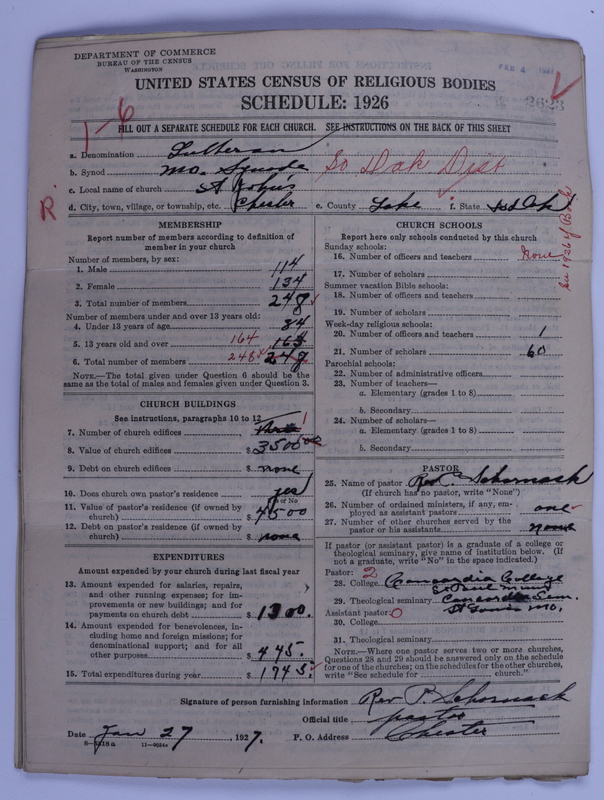 DEPARTMENT OF COMMERCE
BUREAU OF THE CENSUS
WASHINGTON
FEB 4
UNITED STATES CENSUS OF RELIGIOUS BODIES
SCHEDULE: 1926
1-6
FILL OUT A SEPARATE SCHEDULE FOR EACH CHURCH. SEE INSTRUCTIONS ON THE BACK OF THIS SHEET
a. Denomination Lutheran
b. Synod Mo. Synode So Dak Dist
c. Local name of church St John's
d. City, town, village, or township, etc. Chester e. County Lake f. State So Dak
R
MEMBERSHIP
Report number of members according to definition of
member in your church
Number of members, by sex:
1. Male 114
2. Female 134
3. Total number of members 248
Number of members under and over 13 years old:
4. Under 13 years of age 84
5. 13 years old and over 164
6. Total number of members 248 248
NOTE.—The total given under Question 6 should be the
same as the total of males and females given under Question 3.
CHURCH BUILDINGS
See instructions, paragraphs 10 to 12
7. Number of church edifices 1
8. Value of church edifices $ 3500
9. Debt on church edifices $ none
10. Does church own pastor's residence yes
Yes or No
11. Value of pastor's residence (if owned by
church) $ 4500
12. Debt on pastor's residence (if owned by
church) $ none
EXPENDITURES
Amount expended by your church during last fiscal year
13. Amount expended for salaries, repairs,
and other running expenses; for im-
provements or new buildings; and for
payments on church debt $ 1300.
14. Amount expended for benevolences, in-
cluding home and foreign missions; for
denominational support; and for all
other purposes $ 445.
15. Total expenditures during year $ 1745.
CHURCH SCHOOLS
Report here only schools conducted by this church
Sunday schools:
16. Number of officers and teachers None
17. Number of scholars
Summer vacation Bible schools:
18. Number of officers and teachers
19. Number of scholars
Week-day religious schools:
20. Number of officers and teachers 1
21. Number of scholars 60
Parochial schools:
22. Number of administrative officers
23. Number of teachers—
a. Elementary (grades 1 to 8)
b. Secondary
24. Number of scholars—
a. Elementary (grades 1 to 8)
b. Secondary
PASTOR
25. Name of pastor Rev. P. Schornack
(If church has no pastor, write "None")
26. Number of ordained ministers, if any, em-
ployed as assistant pastors one
27. Number of other churches served by the
pastor or his assistants none
If pastor (or assistant pastor) is a graduate of a college or
theological seminary, give name of institution below. (If
not a graduate, write "No" in the space indicated.)
Pastor: 2
28. College Concordia College
St Paul Minn
29. Theological seminary Concordia Sem.
Assistant pastor: 0 St Louis Mo.
30. College
31. Theological seminary
NOTE.—Where one pastor serves two or more churches,
Questions 28 and 29 should be answered only on the schedule
for one of the churches; on the schedules for the other churches,
write "See schedule for church."
Signature of person furnishing information Rev P. Schornack
Official title pastor
Date Jan 27, 1927. P. O. Address Chester